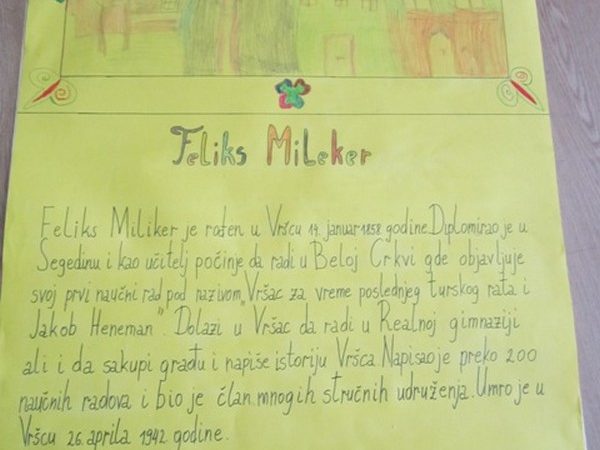 Feliks MiLeker
Feliks Miliker je rođen u Vršcu 14. januar 1858 godine. Diplomirao je u
Segedinu i kao učitelj počinje da radi u Beloj Crkvi gde objavljuje
svoj prvi naučni rad pod nazivom „Vršac za vreme poslednjeg turskog rata i
Jakob Heneman“. Dolazi u Vršac da radi u Realnoj gimnaziji
ali i da sakupi građu i napiše istoriju Vršca. Napisao je preko 200
naučnih radova i bio je član mnogih stručnih udruženja. Umro je u
Vršcu 26. aprila 1942. godine.